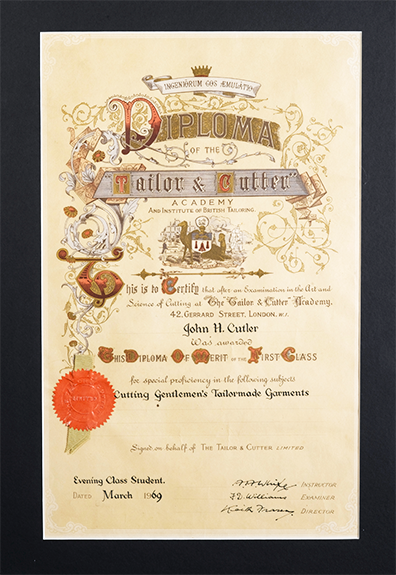 INGENIORUM COS ÆMULATIO
DIPLOMA
OF THE
"Tailor & Cutter"
ACADEMY
AND INSTITUTE OF BRITISH TAILORING.
This is to Certify that after an Examination in the Art and
Science of Cutting at "The Tailor & Cutter" Academy,
42, GERRARD STREET, LONDON, W.1.
John H. Cutler
Was awarded
THIS DIPLOMA OF MERIT OF THE FIRST CLASS
for special proficiency in the following subjects
Cutting Gentlemen's Tailormade Garments
Signed on behalf of THE TAILOR & CUTTER LIMITED
Evening Class Student.
INSTRUCTOR
DATED March 1969
F. E. Williams EXAMINER
DIRECTOR